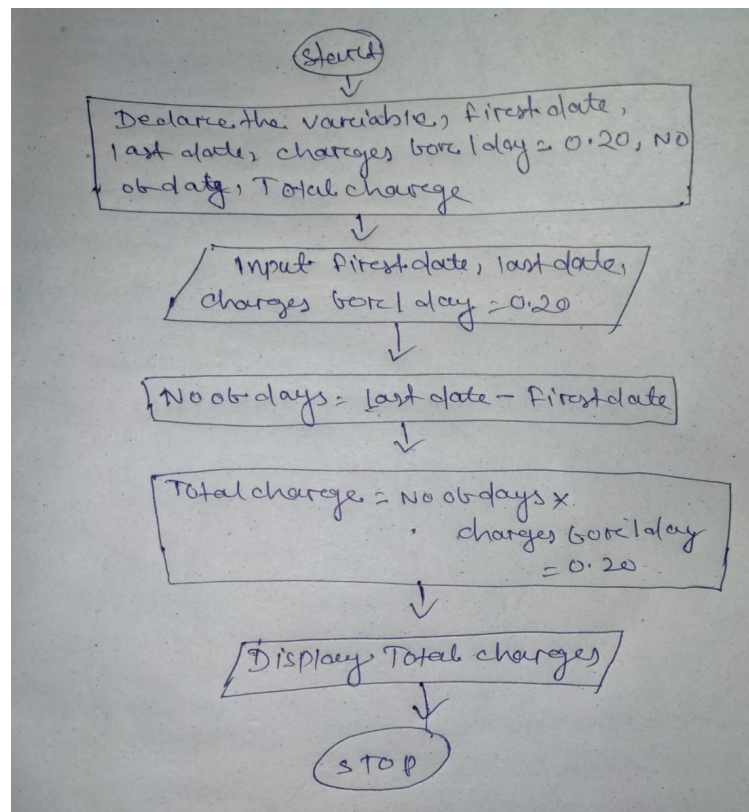 Start
Declare the variable, first date,
last date, charges for 1 day = 0.20, No
of date, Total charge
Input first date, last date,
charges for 1 day = 0.20
No of days = Last date - First date
Total charge = No of days x
charges for 1 day
= 0.20
Display Total charges
STOP